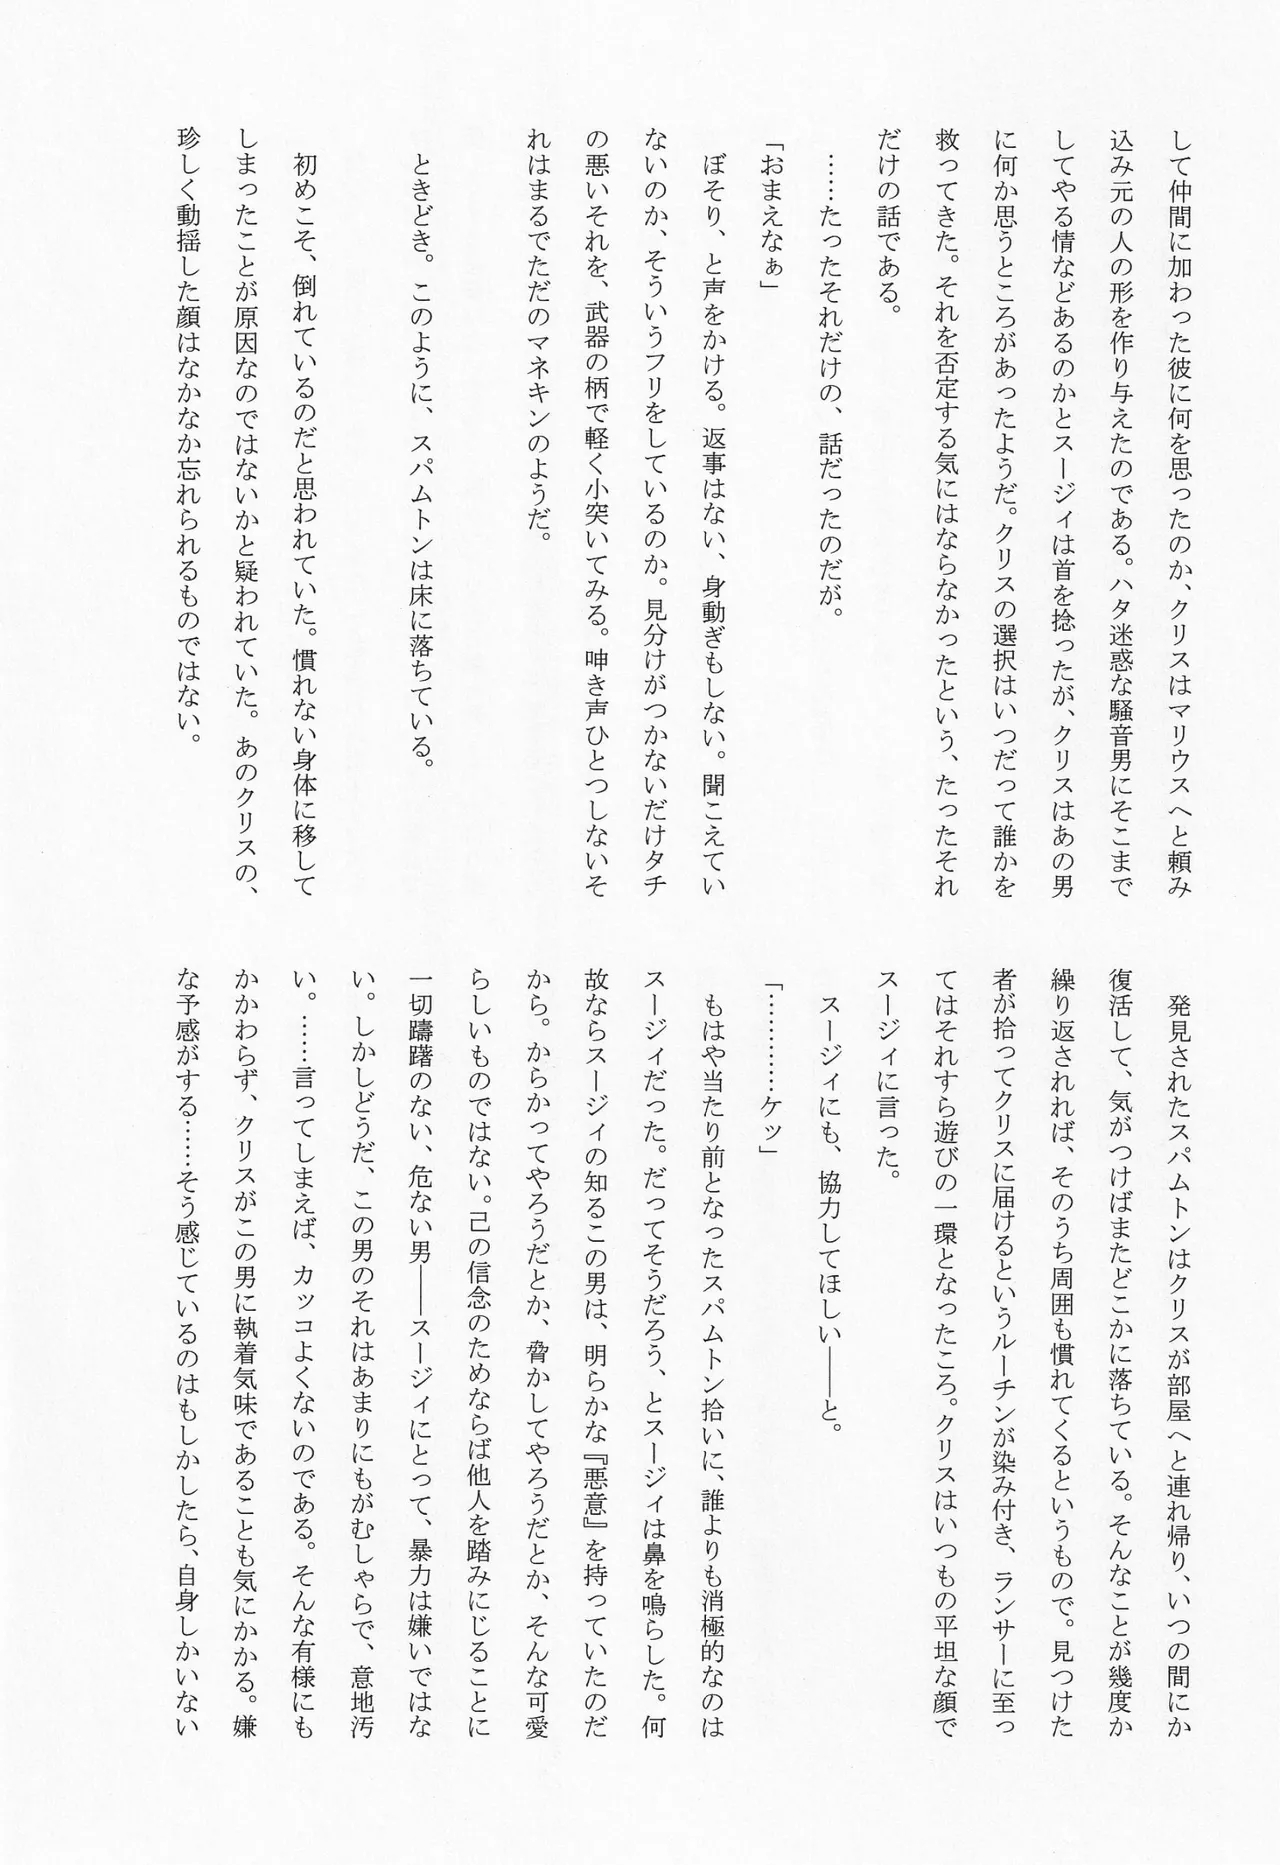 して仲間に加わった彼に何を思ったのか、クリスはマリウスへと頼み
込み元の人の形を作り与えたのである。ハタ迷惑な騒音男にそこまで
してやる情などあるのかとスージィは首を捻ったが、クリスはあの男
に何か思うところがあったようだ。クリスの選択はいつだって誰かを
救ってきた。それを否定する気にはならなかったという、たったそれ
だけの話である。
……たったそれだけの、話だったのだが。
「おまえなぁ」
ぼそり、と声をかける。返事はない、身動ぎもしない。聞こえてい
ないのか、そういうフリをしているのか。見分けがつかないだけタチ
の悪いそれを、武器の柄で軽く小突いてみる。呻き声ひとつしないそ
れはまるでただのマネキンのようだ。
ときどき。このように、スパムトンは床に落ちている。
初めこそ、倒れているのだと思われていた。慣れない身体に移して
しまったことが原因なのではないかと疑われていた。あのクリスの、
珍しく動揺した顔はなかなか忘れられるものではない。
発見されたスパムトンはクリスが部屋へと連れ帰り、いつの間にか
復活して、気がつけばまたどこかに落ちている。そんなことが幾度か
繰り返されれば、そのうち周囲も慣れてくるというもので。見つけた
者が拾ってクリスに届けるというルーチンが染み付き、ランサーに至っ
てはそれすら遊びの一環となったころ。クリスはいつもの平坦な顔で
スージィに言った。
スージィにも、協力してほしい――と。
「…………ケッ」
もはや当たり前となったスパムトン拾いに、誰よりも消極的なのは
スージィだった。だってそうだろう、とスージィは鼻を鳴らした。何
故ならスージィの知るこの男は、明らかな『悪意』を持っていたのだ
から。からかってやろうだとか、脅かしてやろうだとか、そんな可愛
らしいものではない。己の信念のためならば他人を踏みにじることに
一切躊躇のない、危ない男――スージィにとって、暴力は嫌いではな
い。しかしどうだ、この男のそれはあまりにもがむしゃらで、意地汚
い。……言ってしまえば、カッコよくないのである。そんな有様にも
かかわらず、クリスがこの男に執着気味であることも気にかかる。嫌
な予感がする……そう感じているのはもしかしたら、自身しかいない